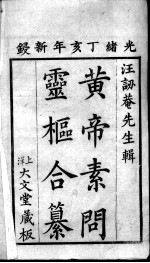 光緒丁亥年新鋟
汪訒菴先生輯
黃帝素問
靈樞合纂
上洋大文堂藏板